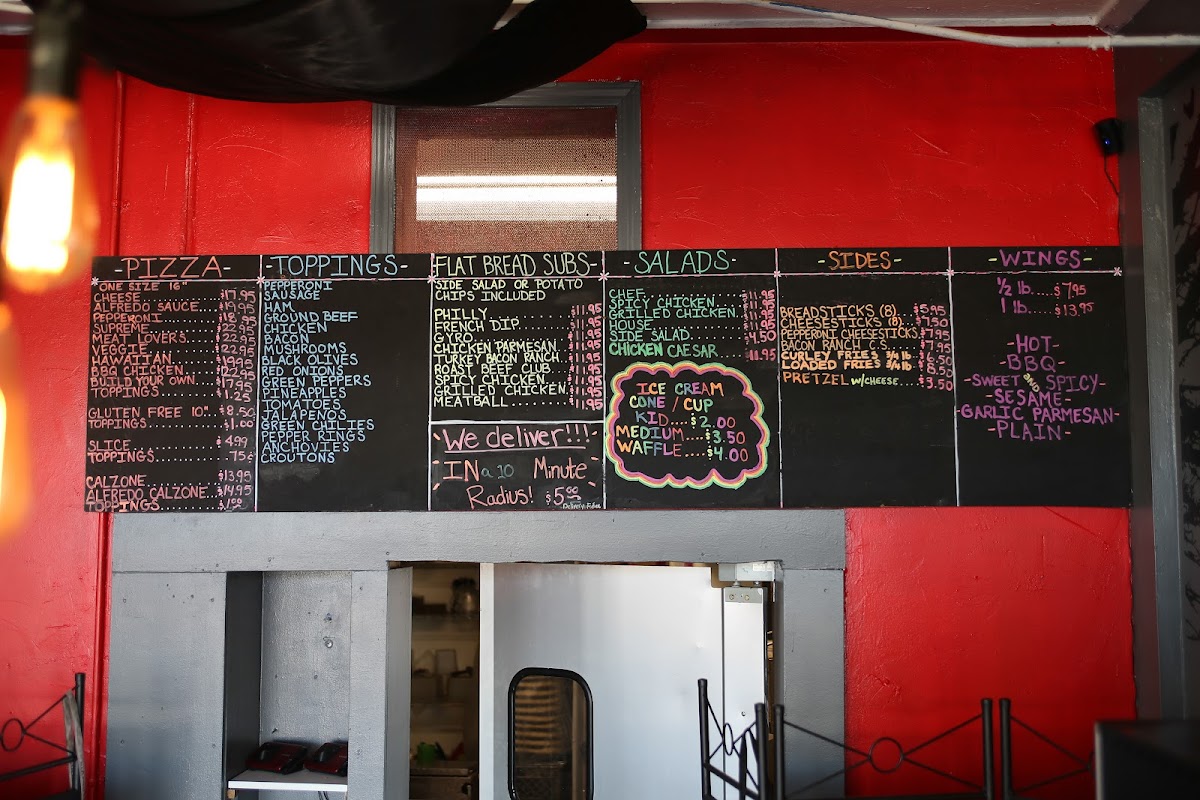 -PIZZA-
"ONE SIZE 16"
CHEESE $17.95
ALFREDO SAUCE $19.95
PEPPERONI $18.95
SUPREME $22.95
MEAT LOVERS $22.95
VEGGIE $22.95
HAWAIIAN $19.95
BBQ CHICKEN $22.95
BUILD YOUR OWN $17.95
TOPPINGS $1.25
GLUTEN FREE 10" $8.50
TOPPINGS $1.00
SLICE $4.99
TOPPINGS 75¢
CALZONE $13.95
ALFREDO CALZONE $14.95
TOPPINGS $1.00
-TOPPINGS-
PEPPERONI
SAUSAGE
HAM
GROUND BEEF
CHICKEN
BACON
MUSHROOMS
BLACK OLIVES
RED ONIONS
GREEN PEPPERS
PINEAPPLES
TOMATOES
JALAPENOS
GREEN CHILIES
PEPPER RINGS
ANCHOVIES
CROUTONS
FLAT BREAD SUBS-
SIDE SALAD OR POTATO
CHIPS INCLUDED
PHILLY $11.95
FRENCH DIP $11.95
GYRO $11.95
CHICKEN PARMESAN $11.95
TURKEY BACON RANCH $11.95
ROAST BEEF CLUB $11.95
SPICY CHICKEN $11.95
GRILLED CHICKEN $11.95
MEATBALL $11.95
We deliver!!!
IN a 10 Minute
Radius! $5.00
Delivery Fee
-SALADS-
CHEF $11.95
SPICY CHICKEN $11.95
GRILLED CHICKEN $11.95
HOUSE $11.95
SIDE SALAD $4.50
CHICKEN CAESAR $11.95
ICE CREAM
CONE / CUP
KID....$2.00
MEDIUM....$3.50
WAFFLE....$4.00
-SIDES-
BREADSTICKS (8) $5.95
CHEESESTICKS (8) $7.50
PEPPERONI CHEESESTICKS $7.95
BACON RANCH C.S. $7.95
CURLEY FRIES 3/4 lb $6.50
LOADED FRIES 3/4 lb $8.50
PRETZEL W/CHEESE $3.50
-WINGS-
½ lb.....$7.95
1 lb.....$13.95
-HOT-
-BBQ-
-SWEET AND SPICY-
-SESAME-
-GARLIC PARMESAN-
-PLAIN-